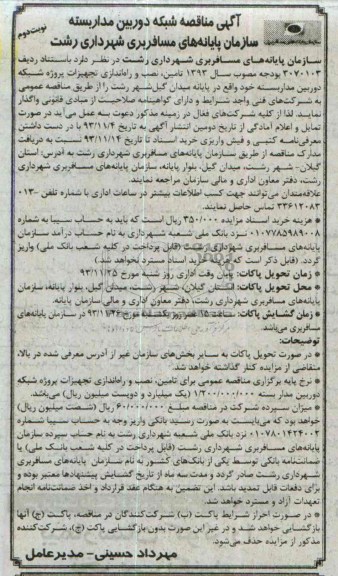 آگهی مناقصه شبکه دوربین مداربسته
نوبت دوم
سازمان پایانه‌های مسافربری شهرداری رشت
سازمان پایانه‌های مسافربری شهرداری رشت در نظر دارد باستناد ردیف
۳۰۷۰۱۰۳ بودجه مصوب سال ۱۳۹۳ تامین، نصب و راه‌اندازی تجهیزات پروژه شبکه
دوربین مداربسته خود واقع در پایانه میدان گیل شهر رشت را از طریق مناقصه عمومی
به شرکت‌های فنی واجد شرایط و دارای گواهینامه صلاحیت از مبادی قانونی واگذار
نماید. لذا از کلیه شرکت‌های فعال در زمینه مذکور دعوت بعمل می‌آید در صورت
تمایل و اعلام آمادگی از تاریخ دومین انتشار آگهی به تاریخ ۹۳/۱۱/۴ با در دست داشتن
معرفی‌نامه کتبی و فیش واریزی خرید اسناد تا تاریخ ۹۳/۱۱/۱۴ نسبت به دریافت
مدارک مناقصه از طریق سازمان پایانه‌های مسافربری شهرداری رشت به آدرس: استان
گیلان- شهر رشت، میدان گیل، بلوار پایانه، سازمان پایانه‌های مسافربری شهرداری
رشت، دفتر معاون اداری و مالی سازمان مراجعه نمایند.
علاقه‌مندان می‌توانند جهت کسب اطلاعات بیشتر در ساعات اداری با شماره تلفن ۰۱۳-
۳۳۶۱۲۰۸۳ تماس حاصل نمایند.
* هزینه خرید اسناد مزایده ۳۵۰/۰۰۰ ریال است که باید به حساب سیبا به شماره
۰۱۰۷۷۸۵۹۸۹۰۰۸ نزد بانک ملی شعبه شهرداری به نام حساب درآمد سازمان
پایانه‌های مسافربری شهرداری رشت (قابل پرداخت در کلیه شعب بانک ملی) واریز
گردد. (قابل ذکر است که خرید اسناد مسترد نخواهد شد.)
* زمان تحویل پاکات: پایان وقت اداری روز شنبه مورخ ۹۳/۱۱/۲۵
* محل تحویل پاکات: استان گیلان، شهر رشت، میدان گیل، بلوار پایانه، سازمان
پایانه‌های مسافربری شهرداری رشت، دفتر معاون اداری و مالی سازمان پایانه.
* زمان گشایش پاکات: ساعت ۱۵ عصر روز یکشنبه مورخ ۹۳/۱۱/۲۶ در سازمان پایانه‌های
مسافربری می‌باشد.
توضیحات:
* در صورت تحویل پاکات به سایر بخش‌های سازمان غیر از آدرس معرفی شده در بالا،
متقاضی از مزایده کنار گذاشته خواهد شد.
* نرخ پایه برگزاری مناقصه عمومی برای تامین، نصب و راه‌اندازی تجهیزات پروژه شبکه
دوربین مدار بسته ۱/۲۰۰/۰۰۰/۰۰۰ (یک میلیارد و دویست میلیون ریال) می‌باشد.
* میزان سپرده شرکت در مناقصه مبلغ ۶۰/۰۰۰/۰۰۰ ریال (شصت میلیون ریال)
خواهد بود که می‌بایست به صورت رسید بانکی واریز وجه به حساب سیبا شماره
۰۱۰۷۸۰۱۴۲۴۰۰۲ نزد بانک ملی شعبه شهرداری رشت به نام حساب سپرده سازمان
پایانه‌های مسافربری شهرداری رشت (قابل پرداخت در کلیه شعب بانک ملی) یا
ضمانت‌نامه بانکی توسط یکی از بانک‌های کشور به نام سازمان پایانه‌های مسافربری
شهرداری رشت صادر گردد و مدت سه ماه از تاریخ گشایش پیشنهادها معتبر بوده و
برای دفعات قابل تمدید باشد. این تضمین به هنگام عقد قرارداد و اخذ ضمانت‌نامه انجام
تعهدات آزاد و مسترد خواهد شد.
* در صورت احراز شرایط پاکت (ب) شرکت‌کنندگان در مناقصه، پاکت (ج) آنها
بازگشایی خواهد شد و در غیر این صورت بدون بازگشایی پاکت (ج)، شرکت‌کننده
مذکور از مزایده حذف می‌شود.
مهرداد حسینی- مدیرعامل